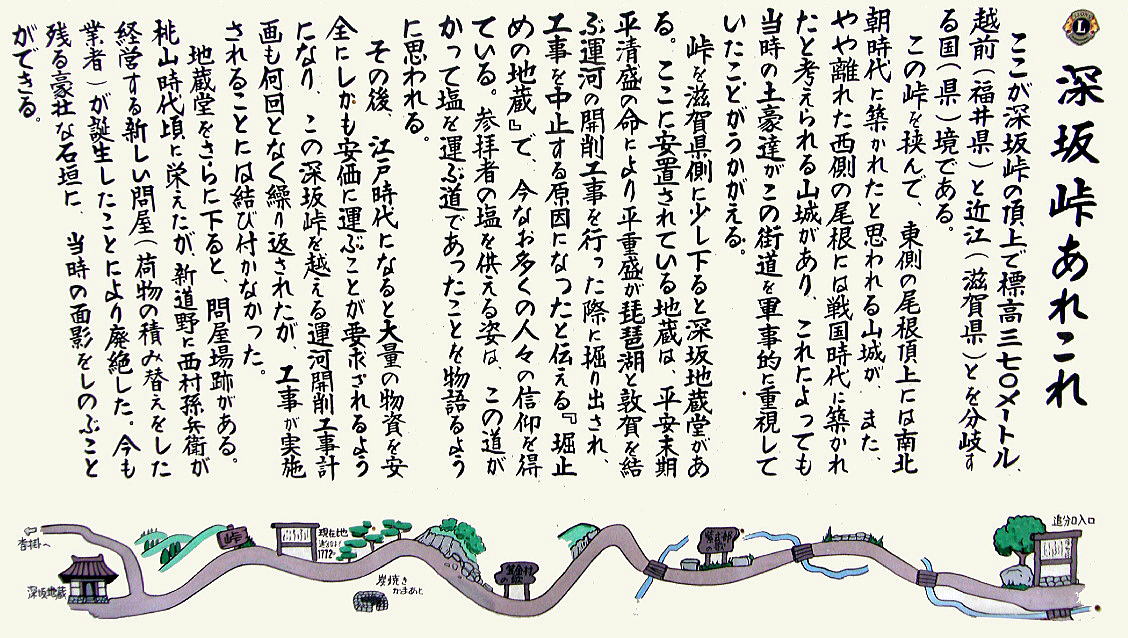 深坂峠あれこれ
ここが深坂峠の頂上で標高三七〇メートル、
越前(福井県)と近江(滋賀県)とを分岐す
る国(県)境である。
この峠を挟んで、東側の尾根頂上には南北
朝時代に築かれたと思われる山城が、また、
やや離れた西側の尾根には戦国時代に築かれ
たと考えられる山城があり、これによっても
当時の土豪達がこの街道を軍事的に重視して
いたことがうかがえる。
峠を滋賀県側に少し下ると深坂地蔵堂があ
る。ここに安置されている地蔵は、平安末期
平清盛の命により平重盛が琵琶湖と敦賀を結
ぶ運河の開削工事を行った際に掘り出され、
工事を中止する原因になったと伝える『堀止
めの地蔵』で、今なお多くの人々の信仰を得
ている。参拝者の塩を供える姿は、この道が
かつて塩を運ぶ道であったことを物語るよう
に思われる。
その後、江戸時代になると大量の物資を安
全にしかも安価に運ぶことが要求されるよう
になり、この深坂峠を越える運河開削工事計
画も何回となく繰り返されたが、工事が実施
されることには結び付かなかった。
地蔵堂をさらに下ると、問屋場跡がある。
桃山時代頃に栄えたが、新道野に西村孫兵衛が
経営する新しい問屋(荷物の積み替えをした
業者)が誕生したことにより廃絶した。今も
残る豪壮な石垣に、当時の面影をしのぶこと
ができる。
沓掛へ
深坂地蔵
峠
現在地
追分より
1772m
炭焼き
かまあと
笠金村
の歌
紫式部
の歌
追分口入口